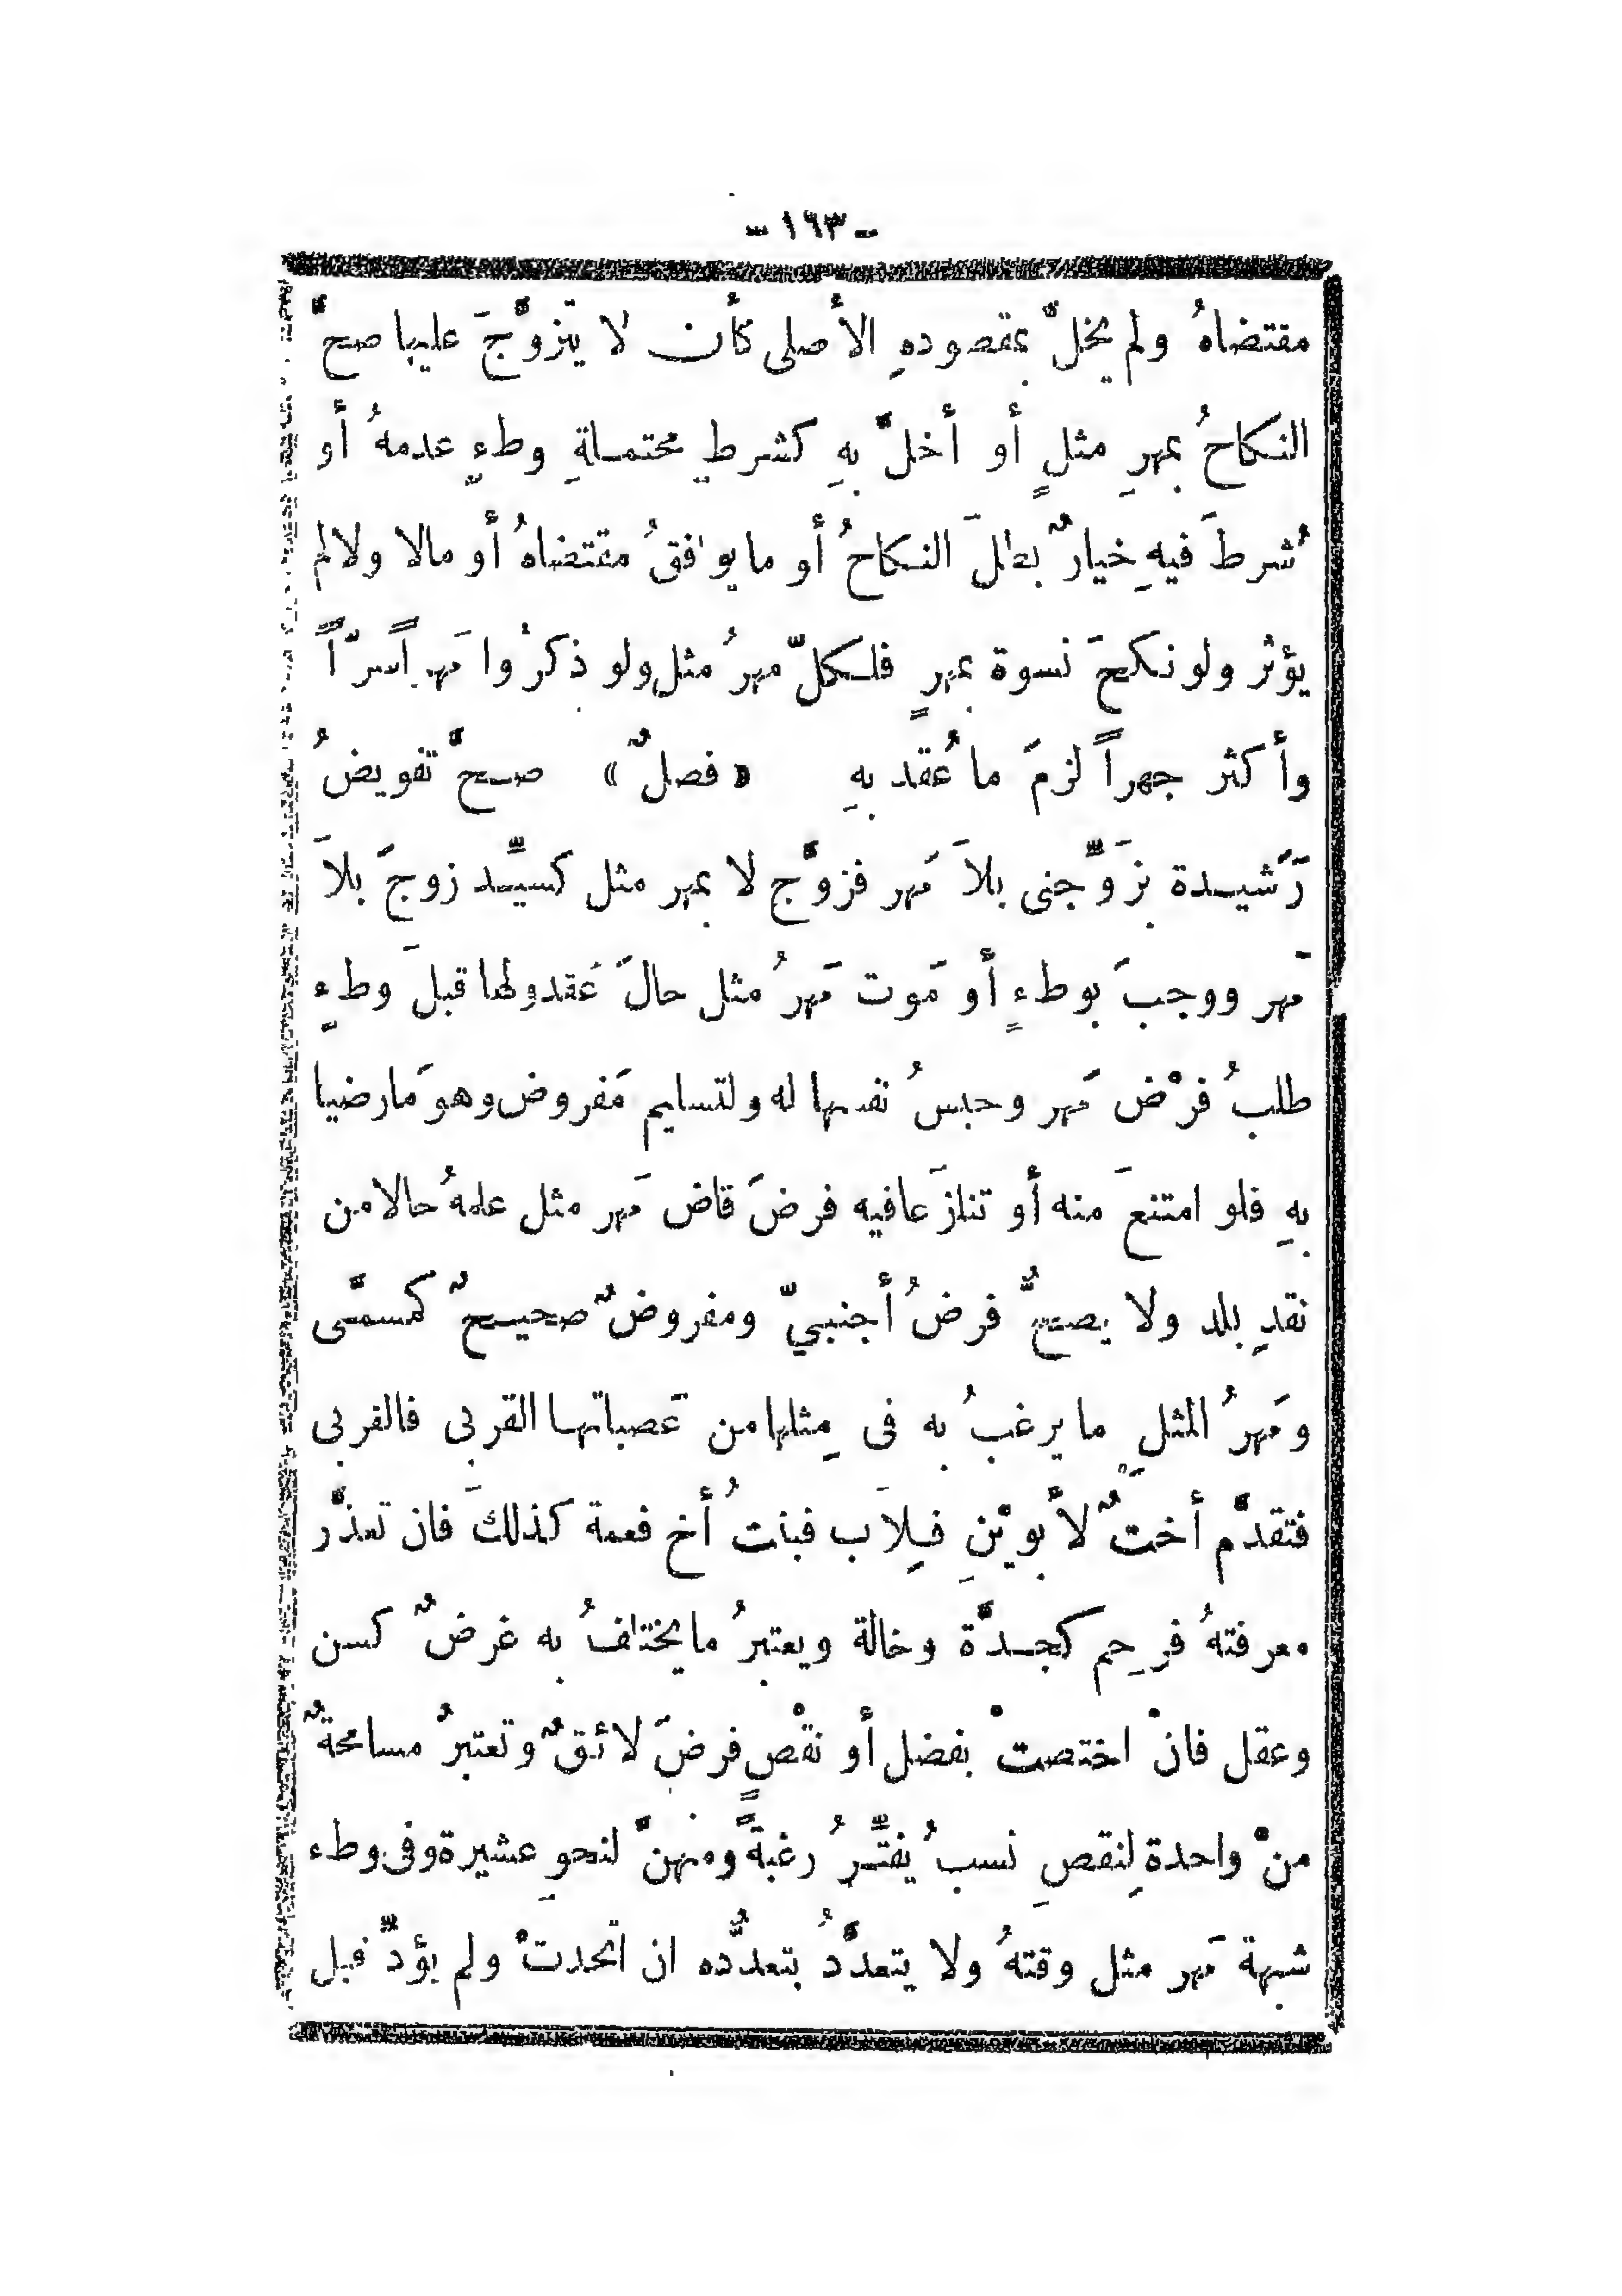 - ١٦٣ -
مقتضاهُ ولم يخلّ بمقصودهِ الأصلى كأن لا يتزوَّجَ عليها صحَّ
النكاحُ بمهرِ مثلٍ أو أخلَّ بهِ كشرطِ محتملةِ وطءٍ عدمهُ أو
شُرطَ فيهِ خيارٌ بطلَ النكاحُ أو ما يوافقُ مقتضاهُ أو مالا ولا لم
يؤثر ولو نكحَ نسوة بمهرٍ فلكلّ مهرُ مثل ولو ذكرُوا مَهراً سرّاً
وأكثر جهراً لزمَ ما عُقد بهِ « فصلٌ » صحَّ تفويضُ
رَشيدة بزَوِّجنى بلاَ مَهر فزوَّج لا بمهر مثل كسيِّد زوجَ بلاَ
مَهر ووجبَ بوطءٍ أو مَوت مَهرُ مثل حالَ عَقد ولها قبلَ وطءٍ
طلبُ فرْض مَهر وحبسُ نفسها له ولتسليم مَفروض وهوَ مَا رضيا
بهِ فلو امتنعَ منه أو تنازَعا فيه فرضَ قاض مَهر مثل علمهُ حالا من
نقدِ بلد ولا يصحُّ فرضُ أجنبيّ ومفروضٌ صحيحٌ كمسمَّى
ومَهرُ المثلِ ما يرغبُ به فى مِثلها من عَصباتها القربى فالقربى
فتقدَّم أختٌ لأَبويْنِ فلِأَب فبنتُ أخ فعمة كذلكَ فان تعذَّر
معرفتهُ فرحِم كجدَّة وخالة ويعتبرُ ما يختلفُ به غرضٌ كسن
وعقل فانْ اختصتْ بفضل أو نقْصٍ فرضَ لائقٌ وتعتبرُ مسامحةٌ
منْ واحدة لِنقصِ نسبُ يُفتِّرُ رغبةً ومنهنَّ لنحوِ عشيرة وفى وطء
شبهة مَهر مثل وقتهُ ولا يتعدَّدُ بتعدُّده ان اتحدتْ ولم يؤدِّ قبل